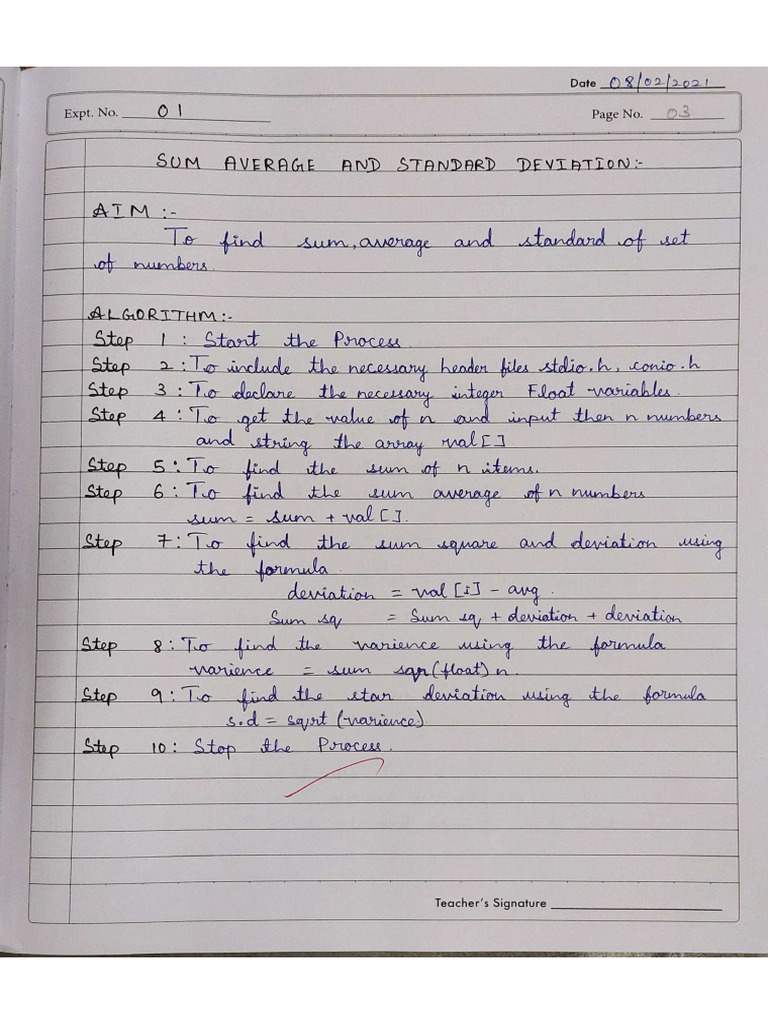 Date 08/02/2021
Expt. No. 01
Page No. 03
SUM AVERAGE AND STANDARD DEVIATION:-
AIM :-
To find sum, average and standard of set
of numbers.
ALGORITHM:-
Step 1 : Start the Process.
Step 2 : To include the necessary header files stdio.h, conio.h
Step 3 : To declare the necessary integer Float variables.
Step 4 : To get the value of n and input then n numbers
and string the array val[]
Step 5 : To find the sum of n items.
Step 6 : To find the sum average of n numbers
sum = sum + val[].
Step 7 : To find the sum square and deviation using
the formula.
deviation = val [i] - avg.
Sum sq = Sum sq + deviation + deviation
Step 8 : To find the varience using the formula
varience = sum sqr(float) n.
Step 9 : To find the star deviation using the formula
s.d = sqrt (varience)
Step 10 : Stop the Process.
Teacher's Signature